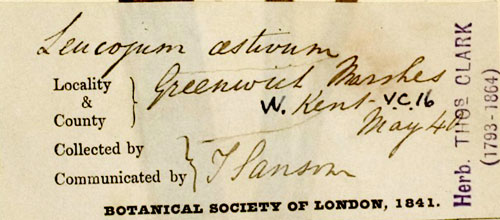 Leucojum æstivum
Locality & County } Greenwich Marshes
W. Kent - V.C.16
May 40
Collected by
Communicated by } T Sansom
BOTANICAL SOCIETY OF LONDON, 1841.
Herb. THOS CLARK
(1793-1864)